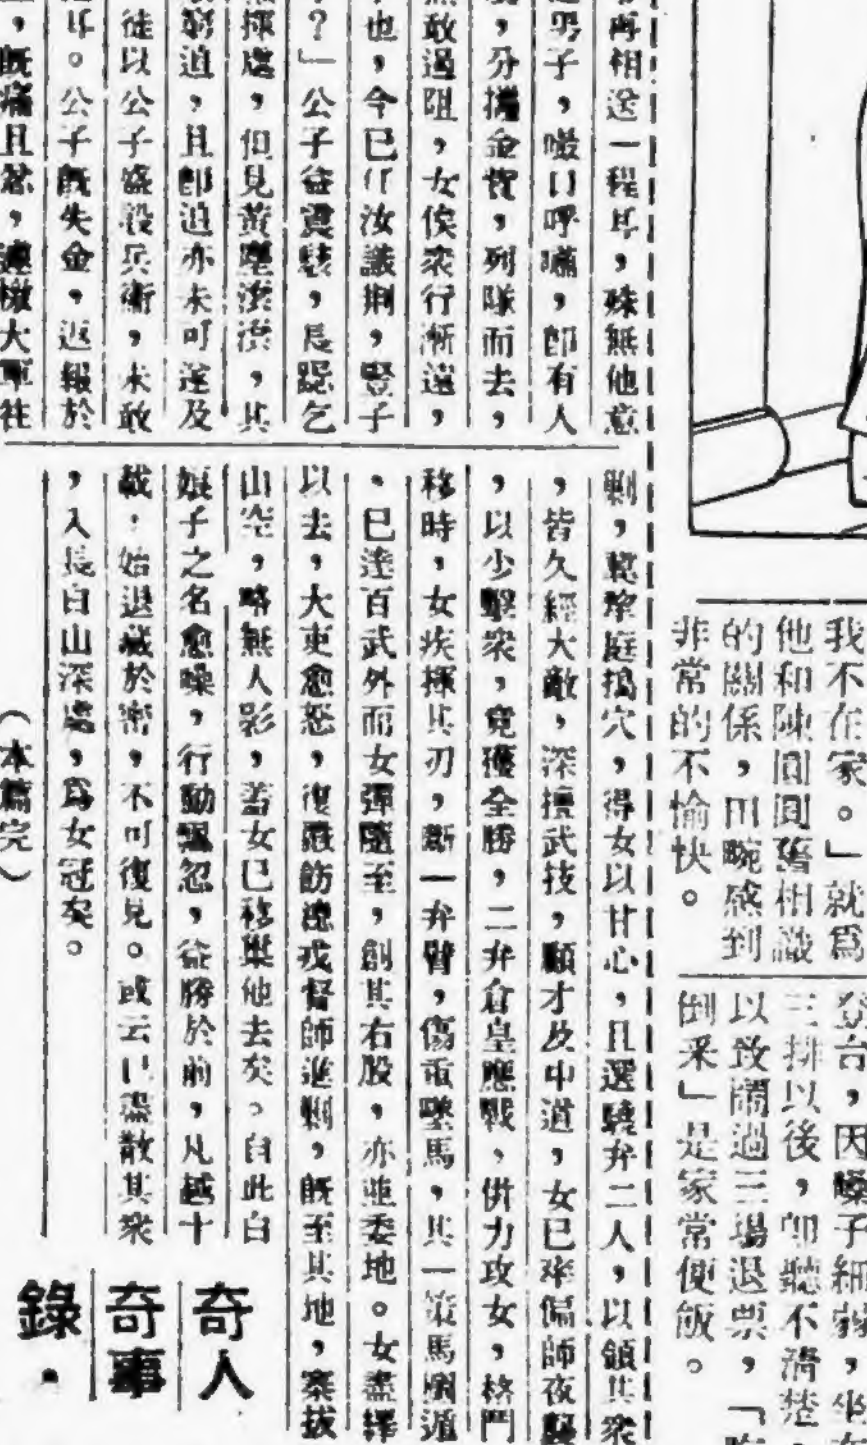 再相送一程耳，殊無他意
男子，嘬口呼嘯，卽有人
，分攜金資，列隊而去，
敢過阻，女俟衆行漸遠，
也，今已仃汝議捌，豎子
？」公子益震駭，長跽乞
揮處，但見黃塵漠漠，其
窮迫，且卽迫亦未可遂及
徒以公子盛設兵衛，未敢
耳。公子旣失金，返報於
，旣痛且忿，連檄大軍往
剿，犂庭搗穴，得女以甘心，且選驍弁二人，以領其衆
，皆久經大敵，深擅武技，顧才及中道，女已率偏師夜襲
，以少擊衆，竟獲全勝，二弁倉皇應戰，併力攻女，格鬥
移時，女疾揮其刃，斷一弁臂，傷重墜馬，其一策馬圖遁
。已達百武外而女彈隨至，創其右股，亦並委地。女盡釋
以去，大吏愈怒，復嚴飭總戎督師進剿，旣至其地，寨拔
山空，略無人影，蓋女已移巢他去矣。自此白
娘子之名愈噪，行動飄忽，益勝於前，凡越十
載，始退藏於密，不可復見。或云已混散其衆
，入長白山深處，爲女冠矣。
（本篇完）
奇人
奇事
錄．
我不在家。」就爲
他和陳圓圓舊相識
的關係，田畹感到
非常的不愉快。
登台，因嗓子細弱，坐在
三排以後，卽聽不淸楚，
以致鬧過三場退票，「
倒釆」是家常便飯。